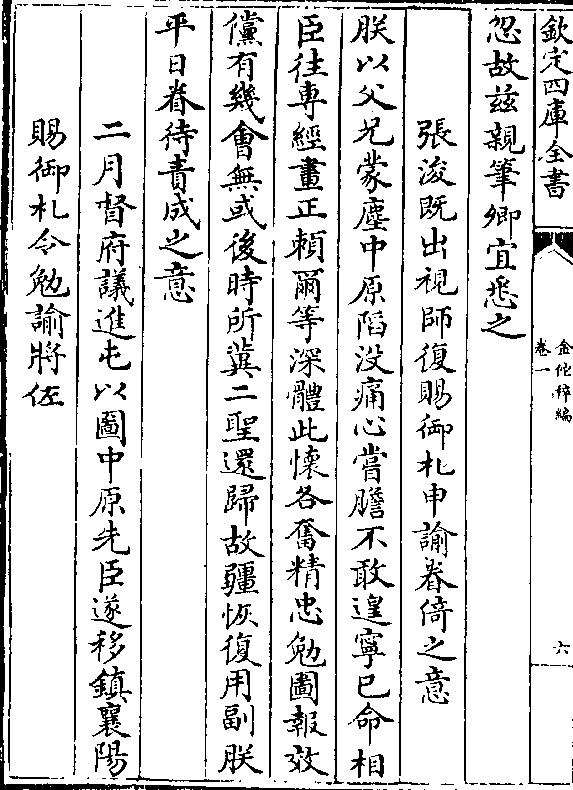 欽定四庫全書
金佗稡編
卷一
六
忽故茲親筆卿宜悉之
張浚既出視師復賜御札申諭眷倚之意
朕以父兄蒙塵中原陷没痛心嘗膽不敢遑寧已命相
臣往專經畫正頼爾等深體此懷各奮精忠勉圖報效
儻有幾會無或後時所冀二聖還歸故疆恢復用副朕
平日眷待責成之意
二月督府議進屯以圖中原先臣遂移鎮襄陽
賜御札令勉諭將佐